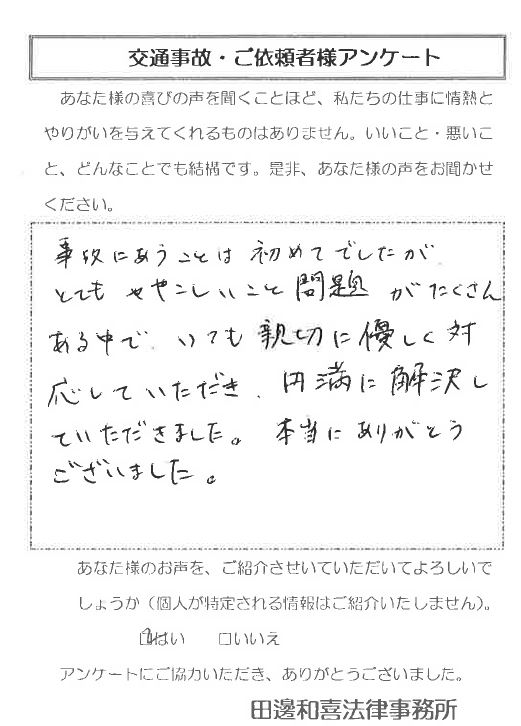 交通事故・ご依頼者様アンケート
あなた様の喜びの声を聞くことほど、私たちの仕事に情熱と
やりがいを与えてくれるものはありません。いいこと・悪いこ
と、どんなことでも結構です。是非、あなた様の声をお聞かせ
ください。
事故にあうことは初めてでしたが
とても ややこしいこと 問題 がたくさん
ある中で、いつも親切に優しく対
応していただき、円満に解決し
ていただきました。本当にありがとう
ございました。
あなた様のお声を、ご紹介させいていただいてよろしいで
しょうか（個人が特定される情報はご紹介いたしません）。
☑はい □いいえ
アンケートにご協力いただき、ありがとうございました。
田邊和喜法律事務所